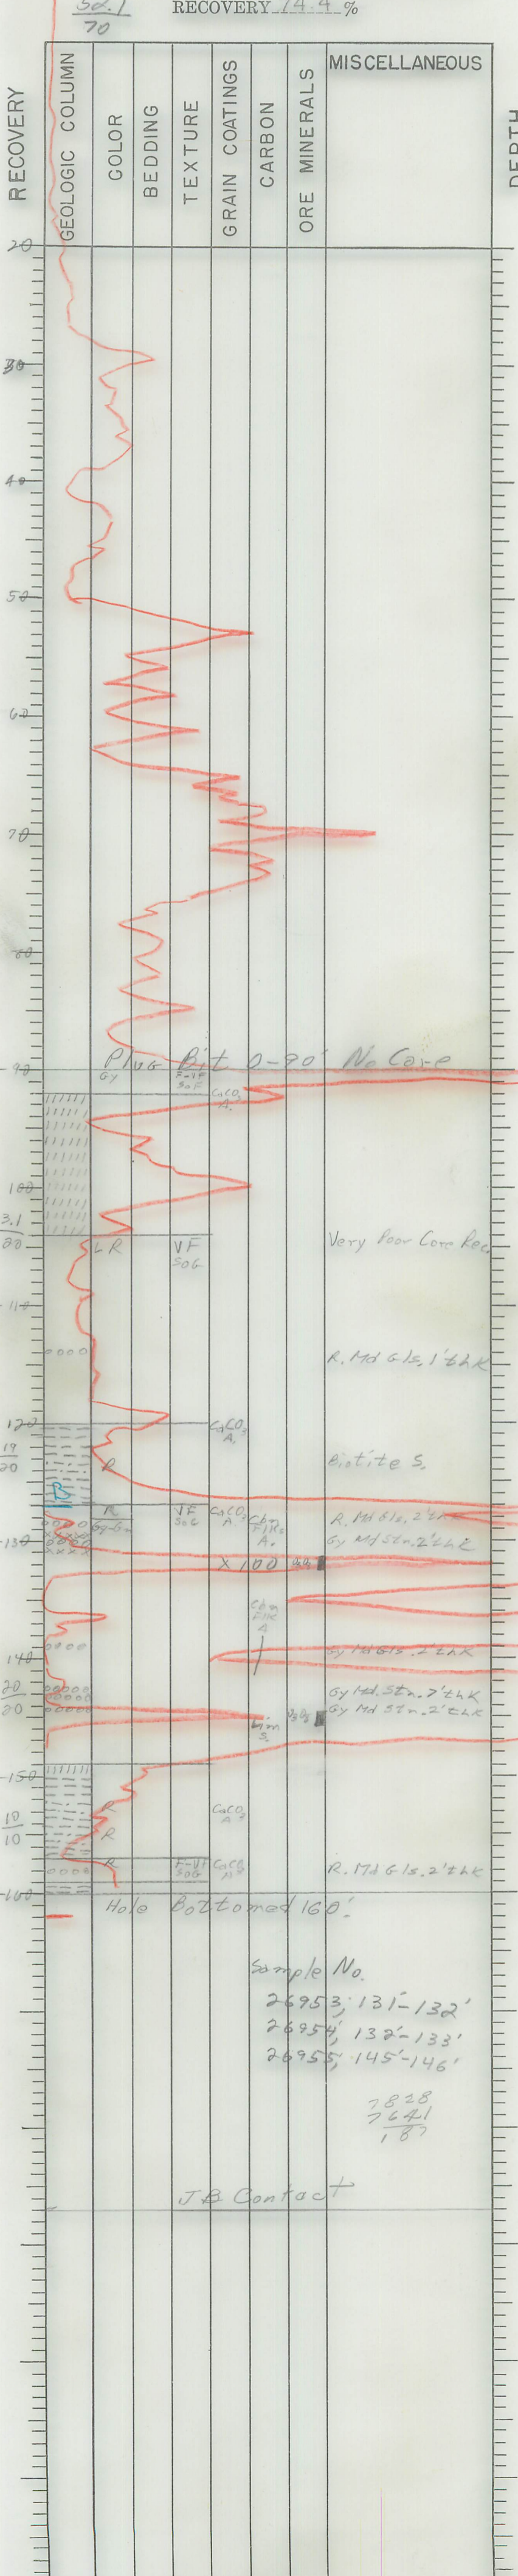 52.1
70
RECOVERY 74.4 %
RECOVERY
GEOLOGIC COLUMN
COLOR
BEDDING
TEXTURE
GRAIN COATINGS
CARBON
ORE MINERALS
MISCELLANEOUS
DEPTH
20
30
40
50
60
70
80
Plug Bit 0-90' No Core
90
Gy
F-VF
SoF
CaCO3
A.
100
3.1
20
LR
VF
SoG
Very Poor Core Rec.
110
R. Md Gls, 1' thk
120
CaCO3
A.
19
20
R
Biotite S.
B
R
VF
SoG
CaCO3
A
Cbn
Flk
A.
R. Md Gls, 2' thk
Gy-Gn
Gy Md Stn, 2' thk
130
X 100
Cbn
Flk
A
140
Gy Md Gls, 1' thk
20
20
Gy Md Stn, 7' thk
Gy Md Stn, 2' thk
Lim
S.
150
R
CaCO3
A
10
10
R
R
F-VF
SoG
CaCO3
A
R. Md Gls, 2' thk
160
Hole Bottomed 160'
Sample No.
26953, 131'-132'
26954, 132'-133'
26955, 145'-146'
7828
7641
187
JB Contact